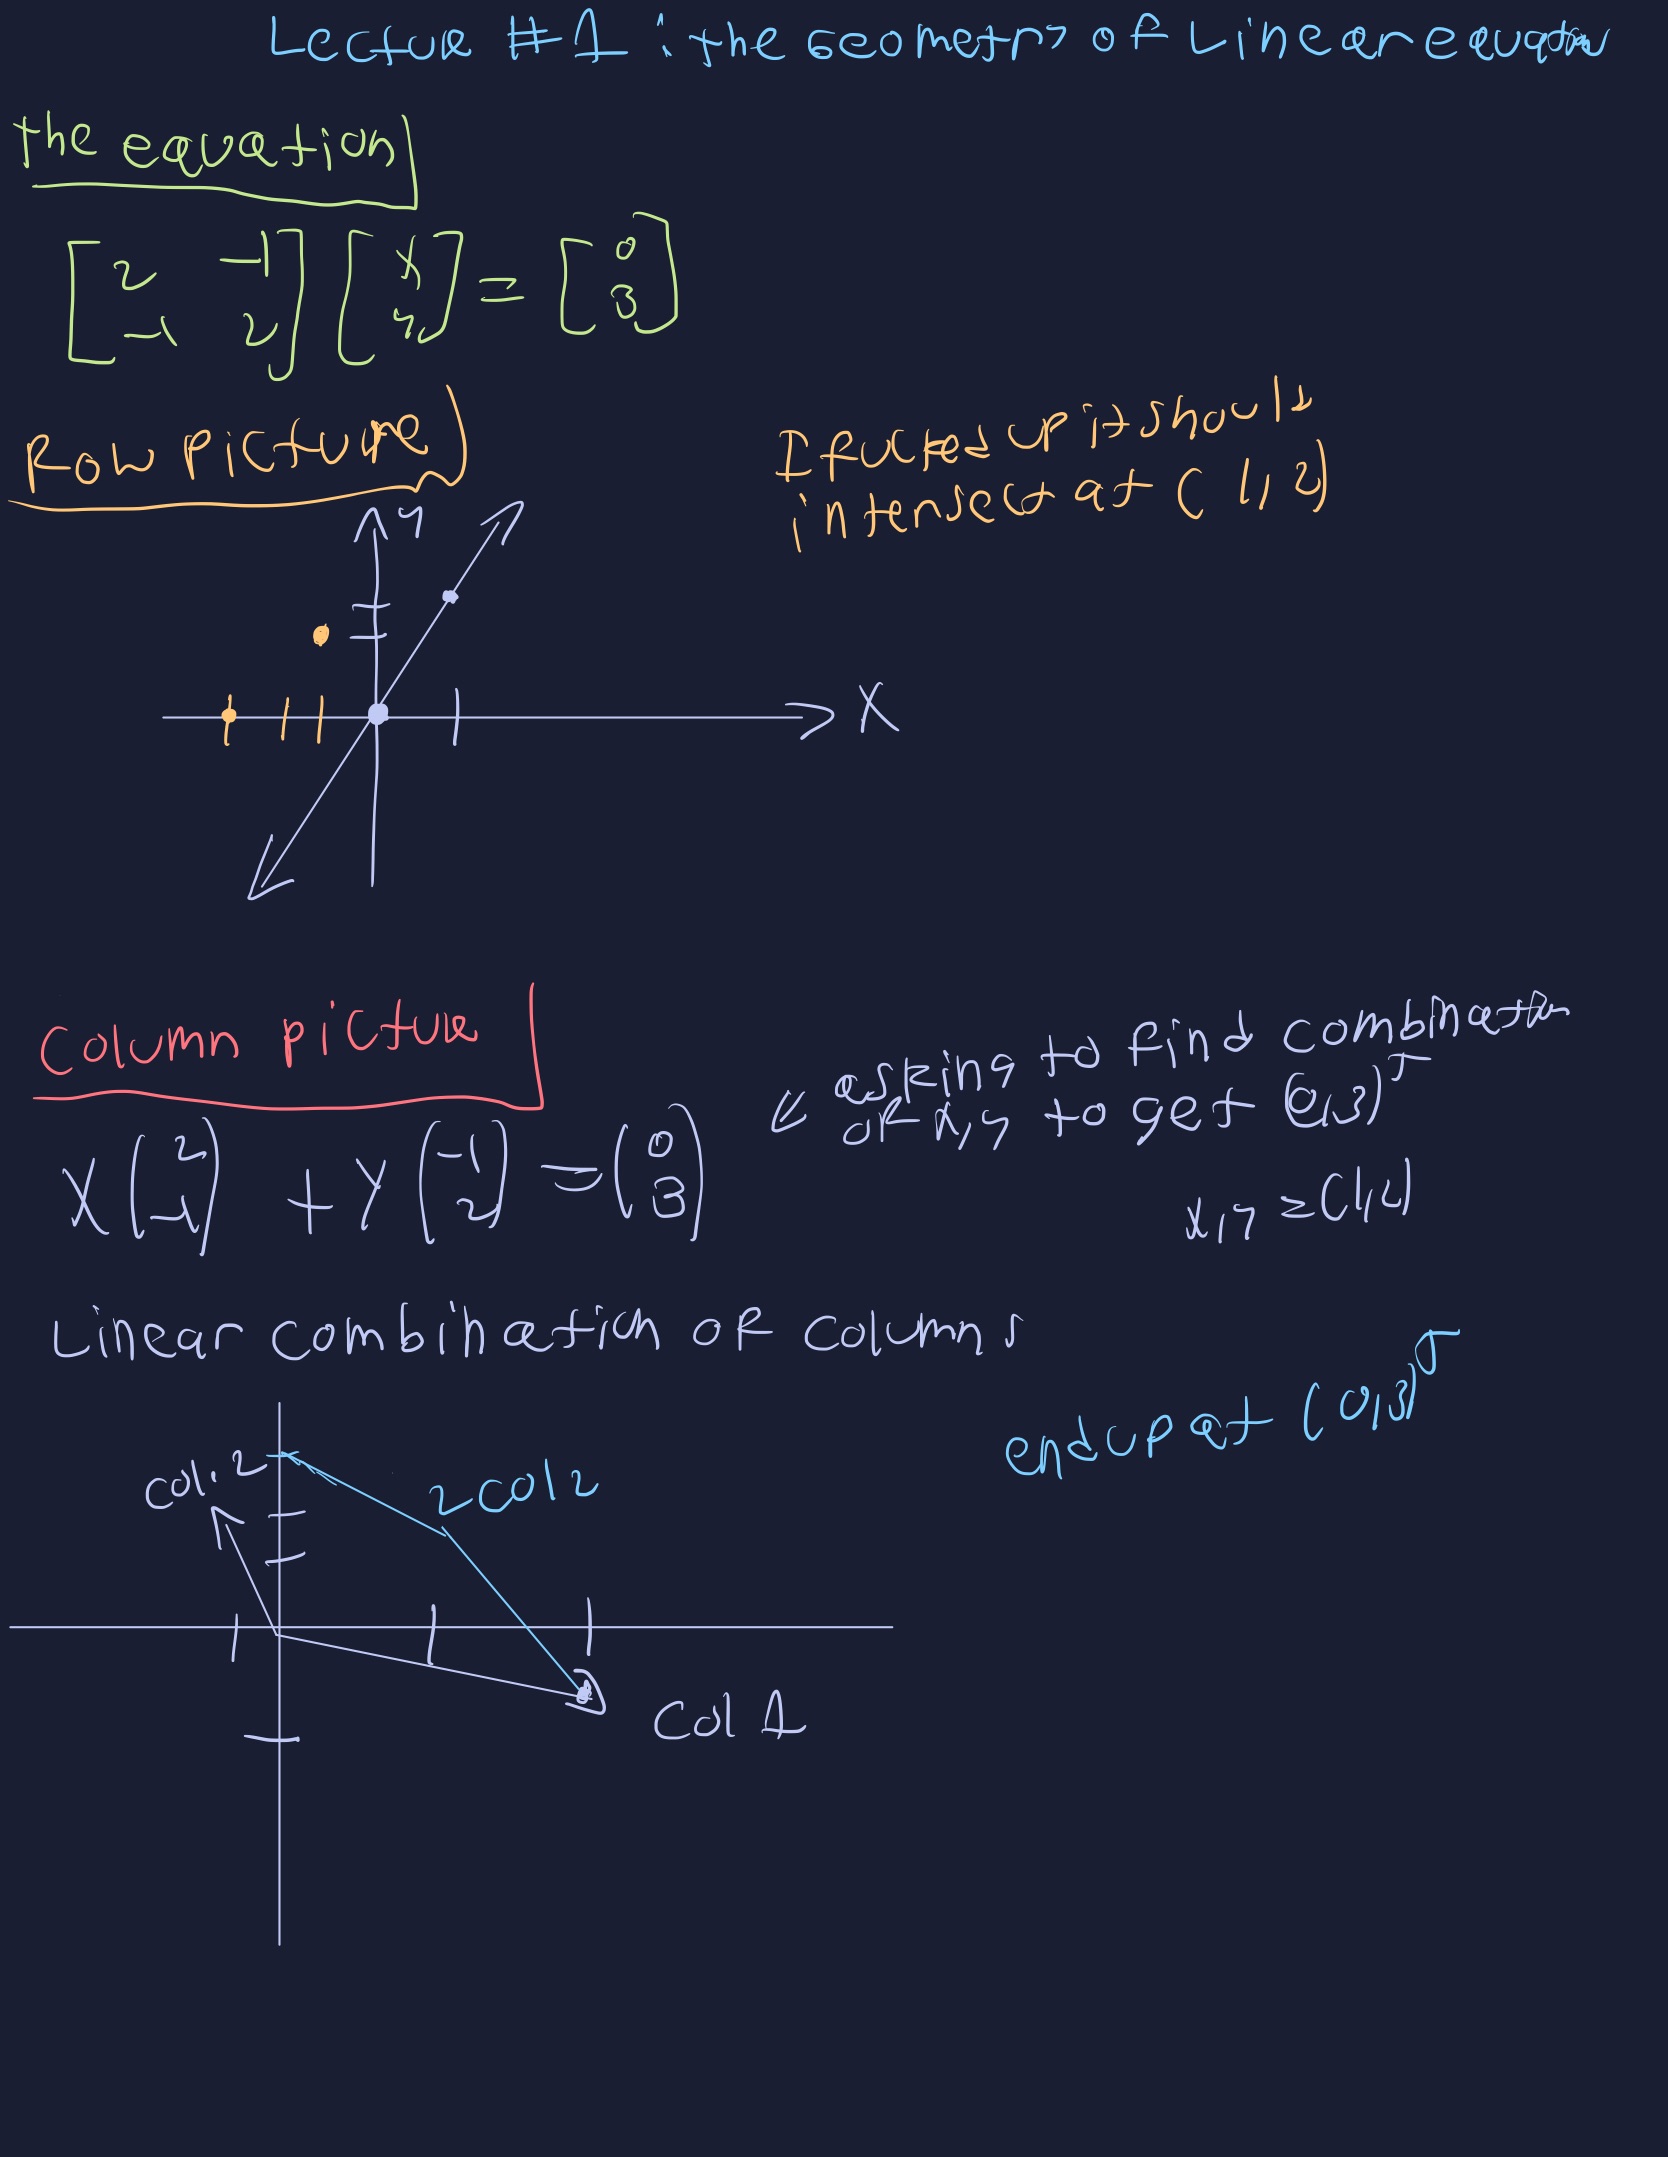 Lecture #1 : the Geometry of Linear equation
the equation
[2 -1] [x] = [0]
[-1 2] [y] [3]
Row picture
I fucked up it should
intersect at (1,2)
y
X
Column picture
asking to find combination
of x,y to get (0,3)ᵀ
X(2) + Y(-1) = (0)
(-1) (2) (3)
x,y = (1,2)
Linear combination of columns
end up at (0,3)ᵀ
col. 2
2col2
Col 1